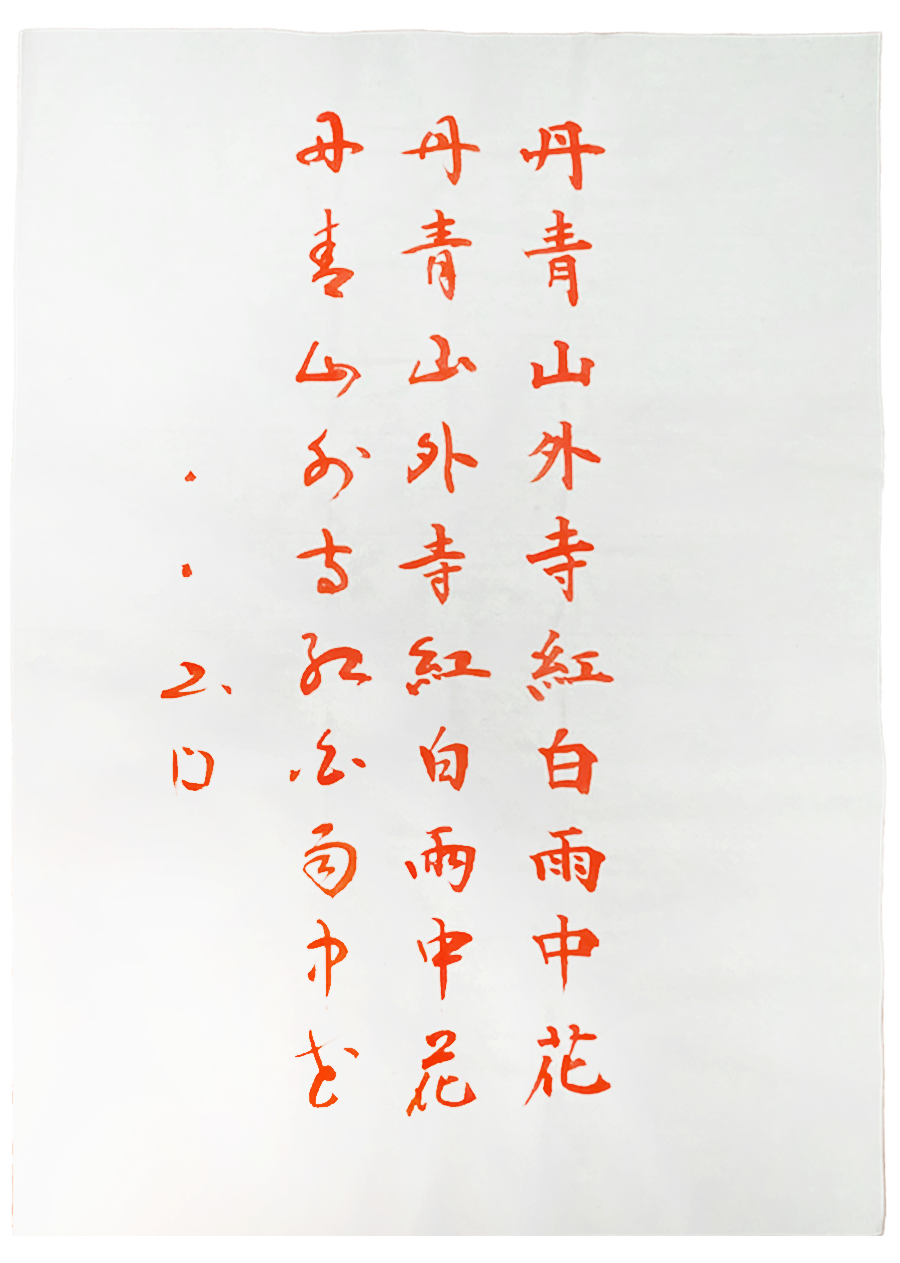 丹青山外寺紅白雨中花
丹青山外寺紅白雨中花
丹青山外寺紅白雨中花